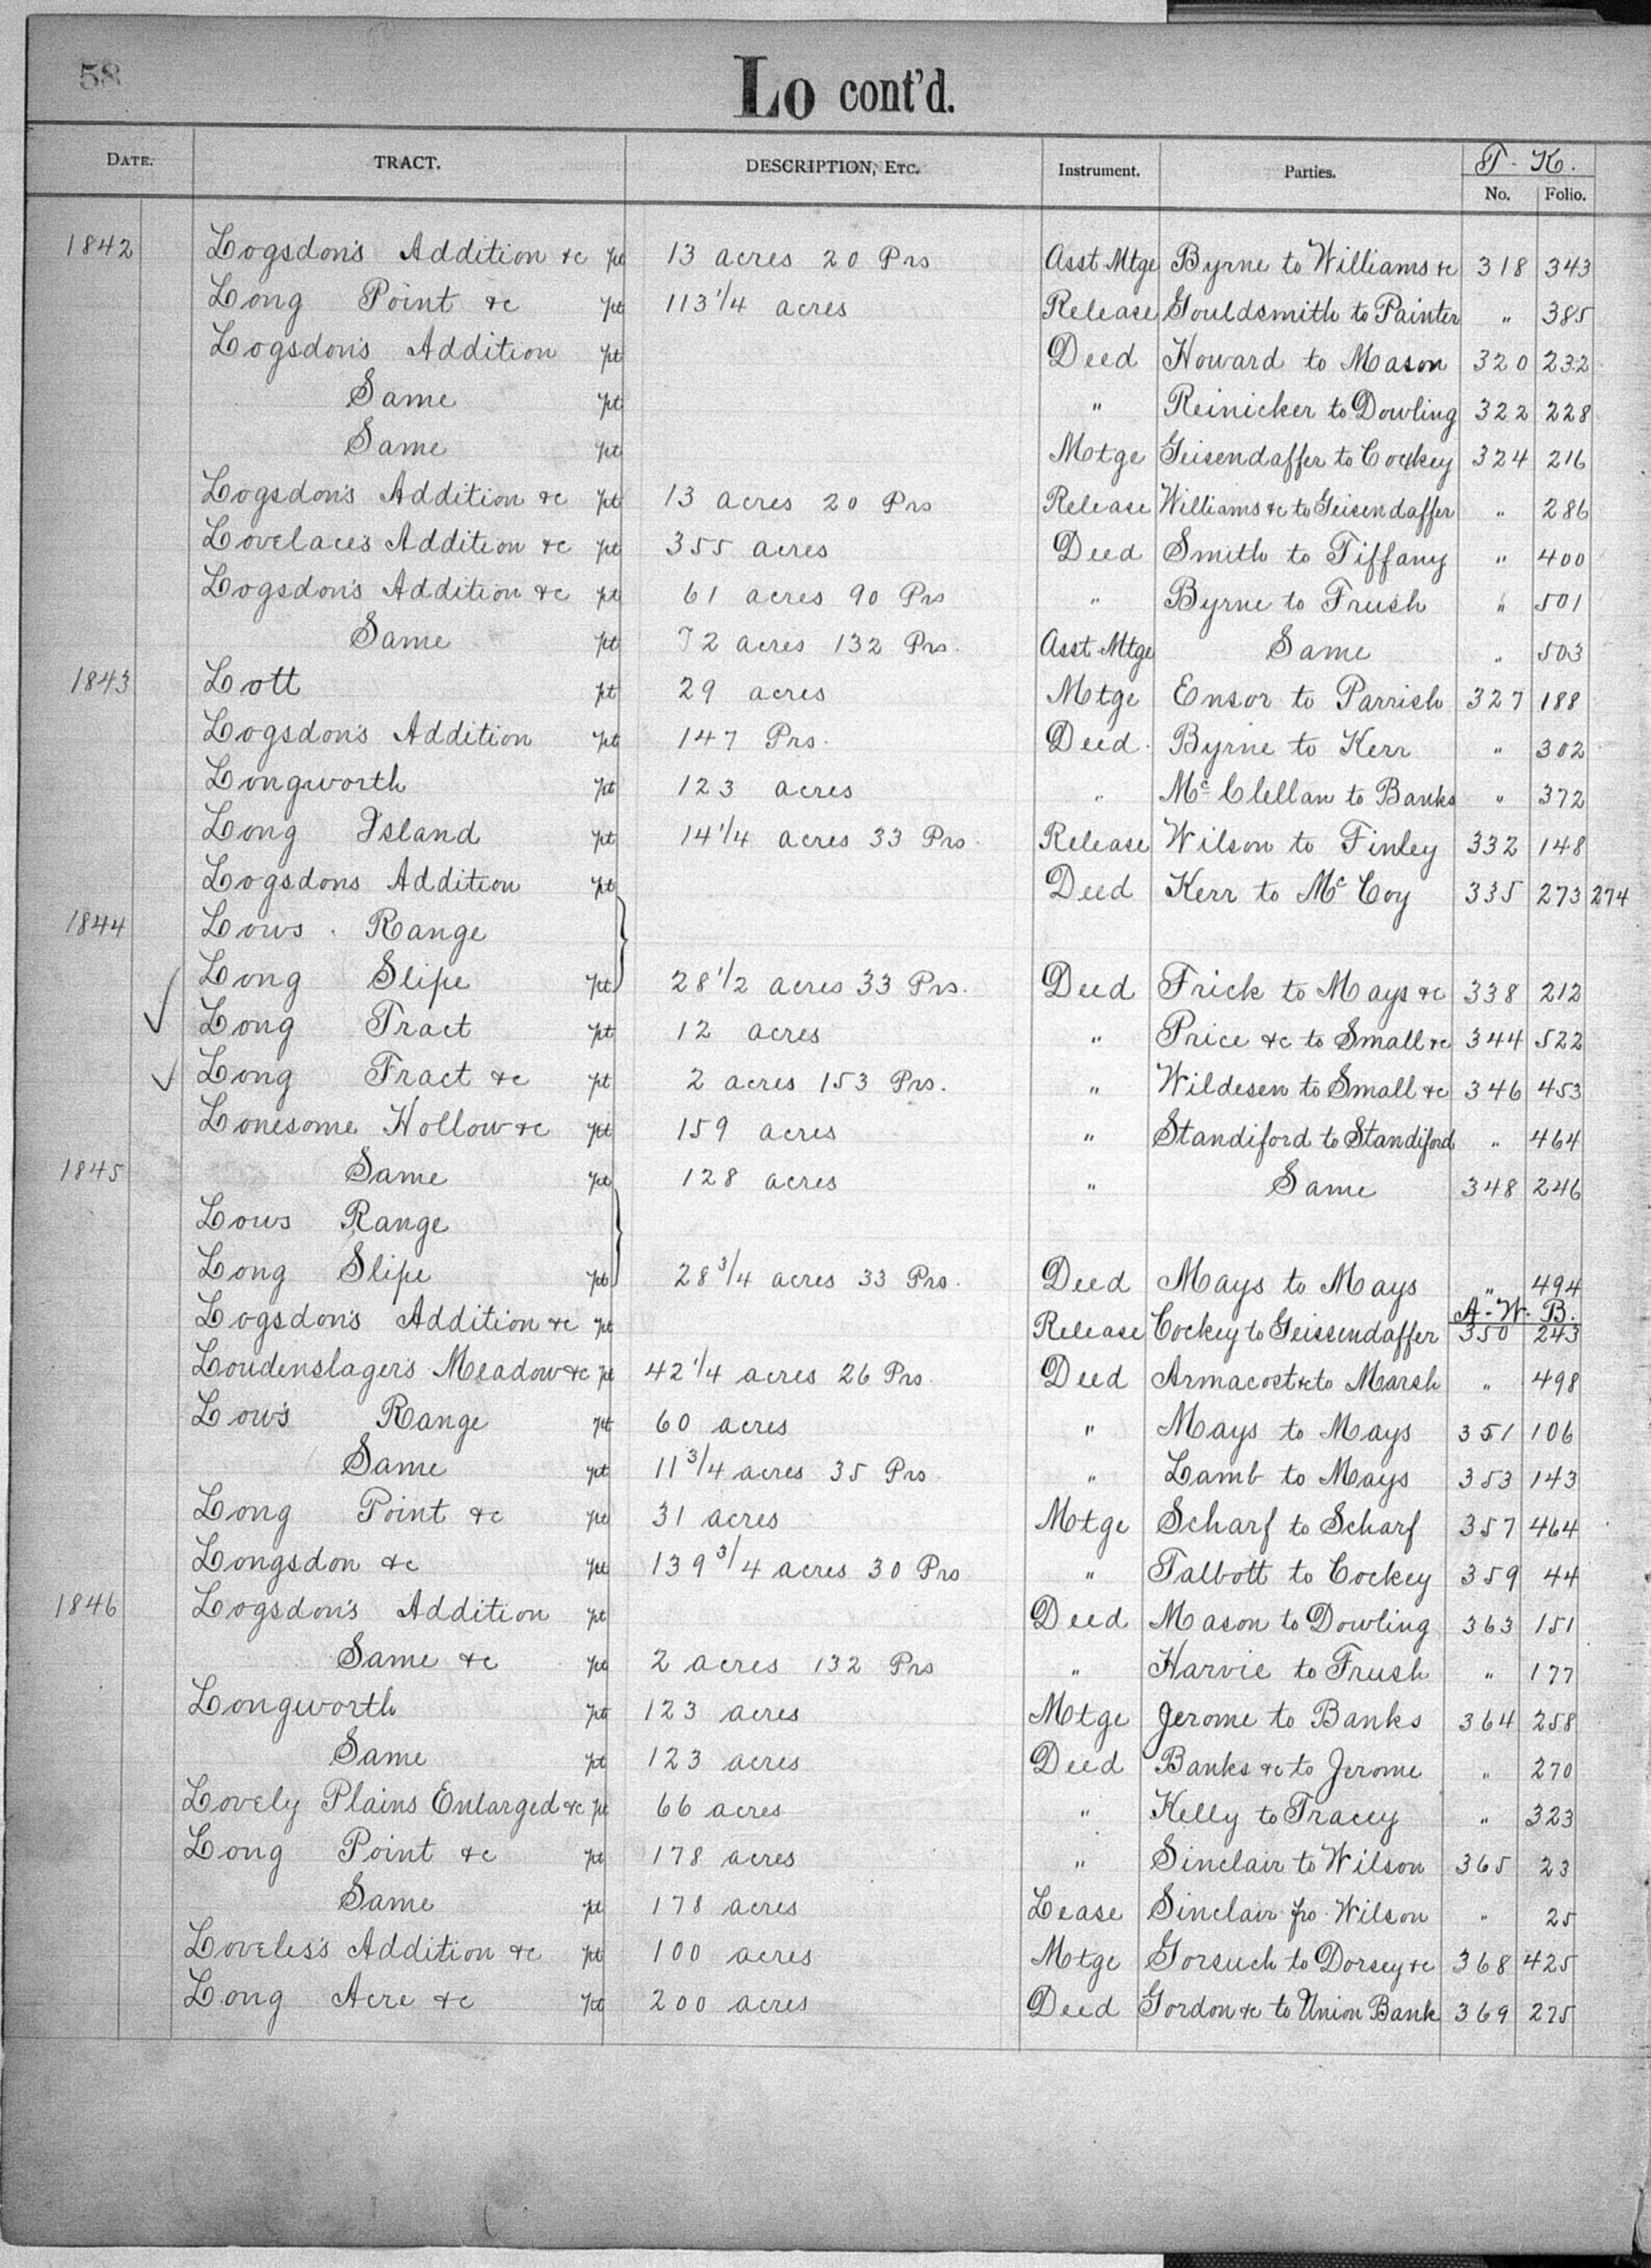 58
Lo cont'd.
DATE. TRACT. DESCRIPTION, ETC. Instrument. Parties. T. K. No. Folio.
1842 Logsdon's Addition &c pt 13 acres 20 Prs Asst Mtge Byrne to Williams &c 318 343
Long Point &c pt 113 1/4 acres Release Gouldsmith to Painter " 385
Logsdon's Addition pt Deed Howard to Mason 320 232
Same pt " Reinicker to Dowling 322 228
Same pt Motge Geisendaffer to Cockey 324 216
Logsdon's Addition &c pt 13 acres 20 Prs Release Williams &c to Geisendaffer " 286
Lovelace's Addition &c pt 355 acres Deed Smith to Tiffany " 400
Logsdon's Addition &c pt 61 acres 90 Prs " Byrne to Frush " 501
Same pt 72 acres 132 Prs. Asst. Mtge Same " 503
1843 Lott pt 29 acres Motge Ensor to Parrish 327 188
Logsdon's Addition pt 147 Prs. Deed. Byrne to Kerr " 302
Longworth pt 123 acres " Mc Clellan to Banks " 372
Long Island pt 14 1/4 acres 33 Prs. Release Wilson to Finley 332 148
Logsdons Addition pt Deed Kerr to Mc Coy 335 273 274
1844 Lows Range
Long Slipe pt 28 1/2 acres 33 Prs. Deed Frick to Mays &c 338 212
Long Tract pt 12 acres " Price &c to Small &c 344 522
Long Tract &c pt 2 acres 153 Prs. " Wildesen to Small &c 346 453
Lonesome Hollow &c pt 159 acres " Standiford to Standiford " 464
1845 Same pt 128 acres " Same 348 246
Lows Range
Long Slipe pt 28 3/4 acres 33 Prs. Deed Mays to Mays " 494
A. W. B.
Logsdon's Addition &c pt Release Cockey to Geissendaffer 350 243
Loudenslager's Meadow &c pt 42 1/4 acres 26 Prs. Deed Armacost &c to Marsh " 498
Low's Range pt 60 acres " Mays to Mays 351 106
Same pt 11 3/4 acres 35 Prs. " Lamb to Mays 353 143
Long Point &c pt 31 acres Motge Scharf to Scharf 357 464
Longsdon &c pt 139 3/4 acres 30 Prs " Talbott to Cockey 359 44
1846 Logsdon's Addition pt Deed Mason to Dowling 363 151
Same &c pt 2 acres 132 Prs " Harvie to Frush " 177
Longworth pt 123 acres Motge Jerome to Banks 364 258
Same pt 123 acres Deed Banks &c to Jerome " 270
Lovely Plains Enlarged &c pt 66 acres " Kelly to Tracey " 323
Long Point &c pt 178 acres " Sinclair to Wilson 365 23
Same pt 178 acres Lease Sinclair fro Wilson " 25
Loveless's Addition &c pt 100 acres Motge Gorsuch to Dorsey &c 368 425
Long Acre &c pt 200 acres Deed Gordon &c to Union Bank 369 275